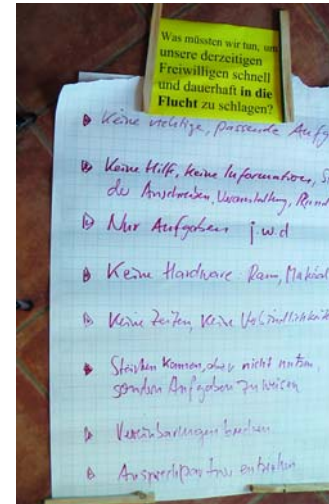 Was müssten wir tun, um
unsere derzeitigen
Freiwilligen schnell
und dauerhaft in die
Flucht zu schlagen?
Keine richtige, passende Aufg
Keine Hilfe, keine Information, S
der Anschreiben, Veranstaltung, Rund
Nur Aufgaben j.w.d
Keine Hardware: Raum, Material
Keine Zeiten, keine Verbindlichkeit
Stärken kennen, aber nicht nutzen,
sondern Aufgaben zuweisen
Vereinbarungen brechen
Ansprechpartner entziehen